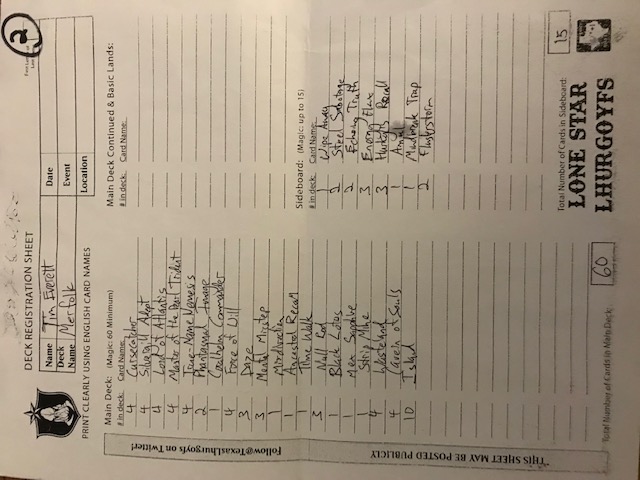 DECK REGISTRATION SHEET
2
Name Tim Everett Date
Deck Name Merfolk Event
Location
PRINT CLEARLY USING ENGLISH CARD NAMES
Follow@TexasLhurgoyfs on Twitter!
*THIS SHEET MAY BE POSTED PUBLICLY
Main Deck: (Magic: 60 Minimum)
# in deck: Card Name:
4 Cursecatcher
4 Silvergill Adept
4 Lord of Atlantis
4 Master of the Pearl Trident
4 True-Name Nemesis
2 Phantasmal Image
1 Coralhelm Commander
4 Force of Will
3 Daze
3 Mental Misstep
1
1 Ancestral Recall
1 Time Walk
3 Null Rod
1 Black Lotus
1 Mox Sapphire
1 Strip Mine
4 Wasteland
4 Cavern of Souls
10 Island
Total Number of Cards in Main Deck: 60
Main Deck Continued & Basic Lands:
# in deck: Card Name:
Sideboard: (Magic: up to 15)
# in deck: Card Name:
1 Wipe Away
2 Steel Sabotage
2 Echoing Truth
3 Energy Flux
3 Hurkyl's Recall
1
1 Mindbreak Trap
2 Flusterstorm
Total Number of Cards in Sideboard: 15
LONE STAR
LHURGOYFS